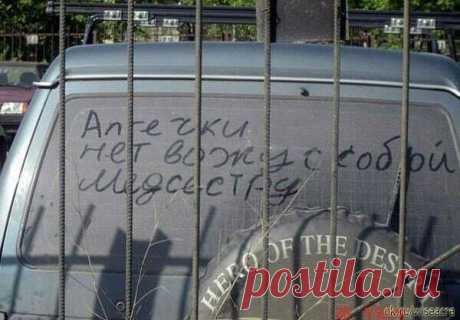 Аптечки
нет вожу с собой
медсестру
HERO OF THE DES
postila.ru
ok.ru/wisecre